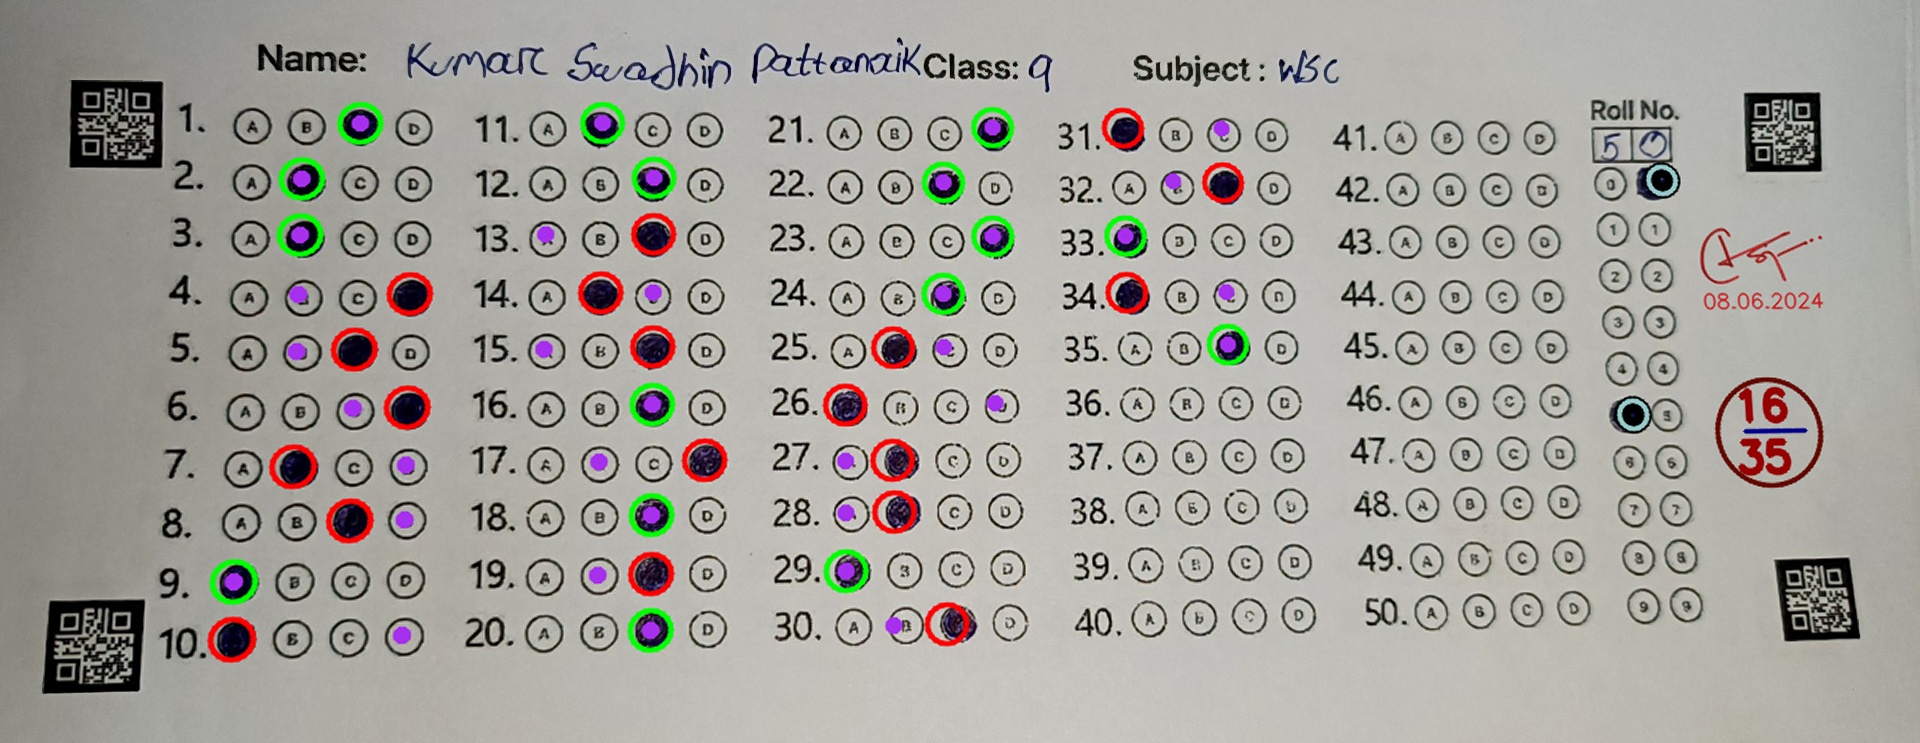 Name: Kumar Swadhin Pattanaik Class: 9 Subject : WSC
1. A B D
2. A C D
3. A C D
4. A C
5. A D
6. A B
7. A C
8. A B
9. B C D
10. B C
11. A C D
12. A B D
13. B D
14. A D
15. B D
16. A B D
17. A C
18. A B D
19. A D
20. A B D
21. A B C
22. A B D
23. A B C
24. A B D
25. A D
26. B C
27. C D
28. C D
29. B C D
30. A B D
31. B D
32. A D
33. B C D
34. B D
35. A B D
36. A B C D
37. A B C D
38. A B C D
39. A B C D
40. A B C D
41. A B C D
42. A B C D
43. A B C D
44. A B C D
45. A B C D
46. A B C D
47. A B C D
48. A B C D
49. A B C D
50. A B C D
Roll No.
5 0
0
1 1
2 2
3 3
4 4
5
6 6
7 7
8 8
9 9
08.06.2024
16
35